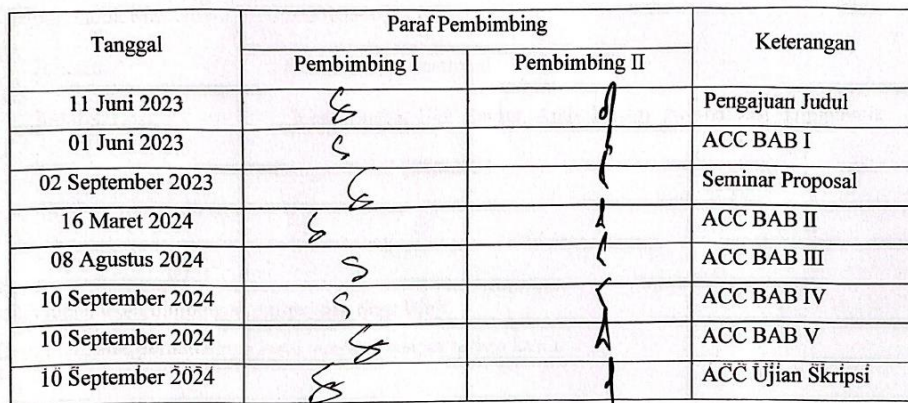 Tanggal
Paraf Pembimbing
Keterangan
Pembimbing I
Pembimbing II
11 Juni 2023
Pengajuan Judul
01 Juni 2023
ACC BAB I
02 September 2023
Seminar Proposal
16 Maret 2024
ACC BAB II
08 Agustus 2024
ACC BAB III
10 September 2024
ACC BAB IV
10 September 2024
ACC BAB V
10 September 2024
ACC Ujian Skripsi